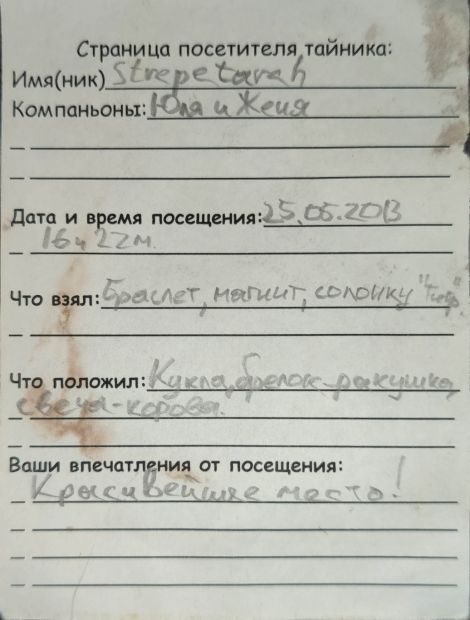 Страница посетителя тайника:
Имя(ник) Strepetarah
Компаньоны: Юля и Женя
Дата и время посещения: 25.05.2013
16ч 22м.
Что взял: Браслет, магнит, солонку
Что положил: Кукла, брелок-ракушка,
свеча-корова.
Ваши впечатления от посещения:
Красивейшее место!